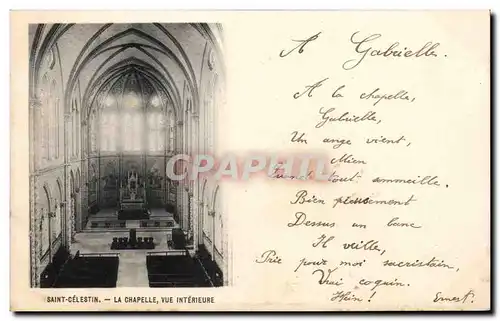 A Gabrielle.
A la chapelle,
Gabrielle,
Un ange vient,
Mien
tout sommeille.
Bien pieusement
Dessus un banc
Il veille,
Prie pour moi sacristain,
Vrai coquin.
Hein!
Ernest.
CARTHAPHILA
SAINT-CÉLESTIN. — LA CHAPELLE, VUE INTÉRIEURE